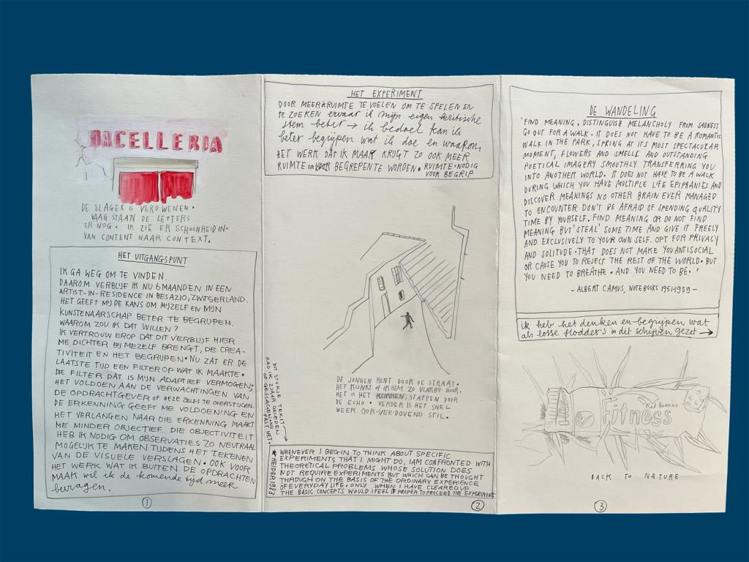 MACELLERIA
DE SLAGER IS VERDWENEN.
VAAG STAAN DE LETTERS
ER NOG. IK ZIE ER SCHOONHEID IN.
VAN CONTENT NAAR CONTEXT.
HET UITGANGSPUNT
IK GA WEG OM TE VINDEN.
DAAROM VERBLIJF IK NU 6 MAANDEN IN EEN
ARTIST-IN-RESIDENCE IN BESAZIO, ZWITSERLAND.
HET GEEFT MIJ DE KANS OM MIJZELF EN MIJN
KUNSTENAARSCHAP BETER TE BEGRIJPEN.
WAAROM ZOU IK DAT WILLEN?
IK VERTROUW EROP DAT DIT VERBLIJF HIER
ME DICHTER BIJ MEZELF BRENGT, DE CREA-
TIVITEIT EN HET BEGRIJPEN. NU ZAT ER DE
LAATSTE TIJD EEN FILTER OP WAT IK MAAKTE.
DE FILTER DAT IS MIJN ADAPTIEF VERMOGEN,
HET VOLDOEN AAN DE VERWACHTINGEN VAN
DE OPDRACHTGEVER OF DEZE ZELFS TE OVERSTIJGEN.
DE ERKENNING GEEFT ME VOLDOENING EN
HET VERLANGEN NAAR DIE ERKENNING MAAKT
ME MINDER OBJECTIEF. DIE OBJECTIVITEIT
HEB IK NODIG OM OBSERVATIES ZO NEUTRAAL
MOGELIJK TE MAKEN TIJDENS HET TEKENEN
VAN DE VISUELE VERSLAGEN. OOK VOOR
HET WERK WAT IK BUITEN DE OPDRACHTEN
MAAK wil ik de komende tijd meer
bevragen.
1
HET EXPERIMENT
DOOR MEER RUIMTE TE VOELEN OM TE SPELEN EN
TE ZOEKEN ervaar ik mijn eigen kritische
stem beter → ik bedoel kan ik
beter begrijpen wat ik doe en waarom.
HET WERK DAT IK MAAK KRIJGT ZO OOK MEER
RUIMTE BEGREPEN TE WORDEN. RUIMTE NODIG
VOOR BEGRIP
DE JONGEN RENT DOOR DE STRAAT.
HET IS HET STAPPEN DOOR
DE ECHO. VERDER IS HET SNEL
WEER OOR-VERDOVEND STIL.
WHENEVER I BEGIN TO THINK ABOUT SPECIFIC
EXPERIMENTS THAT I MIGHT DO, I AM CONFRONTED WITH
THEORETICAL PROBLEMS WHOSE SOLUTION DOES
NOT REQUIRE EXPERIMENTS BUT WHICH CAN BE THOUGHT
THROUGH ON THE BASIS OF THE ORDINARY EXPERIENCE
OF EVERYDAY LIFE. ONLY WHEN I HAVE CLEARED UP
THE BASIC CONCEPTS WOULD I FEEL IT PROPER TO PROCEED TO THE EXPERIMENTS
2
DE WANDELING
'FIND MEANING. DISTINGUISH MELANCHOLY FROM SADNESS
GO OUT FOR A WALK. IT DOES NOT HAVE TO BE A ROMANTIC
WALK IN THE PARK, SPRING AT IT'S MOST SPECTACULAR
MOMENT, FLOWERS AND SMELLS AND OUTSTANDING
POETICAL IMAGERY SMOOTHLY TRANSFERRING YOU
INTO ANOTHER WORLD. IT DOES NOT HAVE TO BE A WALK
DURING WHICH YOU HAVE MULTIPLE LIFE EPIPHANIES AND
DISCOVER MEANINGS NO OTHER BRAIN EVER MANAGED
TO ENCOUNTER. DON'T BE AFRAID OF SPENDING QUALITY
TIME BY YOURSELF. FIND MEANING OR DO NOT FIND
MEANING BUT 'STEAL' SOME TIME AND GIVE IT FREELY
AND EXCLUSIVELY TO YOUR OWN SELF. OPT FOR PRIVACY
AND SOLITUDE. THAT DOES NOT MAKE YOU ANTISOCIAL
OR CAUSE YOU TO REJECT THE REST OF THE WORLD. BUT
YOU NEED TO BREATHE. AND YOU NEED TO BE.'
- ALBERT CAMUS, NOTEBOOKS 1951-1959 -
ik heb het denken en begrijpen wat
als losse flodders in dit schrijven gezet →
fitness
BACK TO NATURE
3